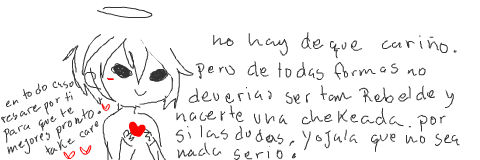 no hay de que cariño.
Pero de todas formas no
deverias ser tan Rebelde y
hacerte una chekeada. por
si las dudas, y ojala que no sea
nada serio.
en todo caso
resare por ti
para que te
mejores pronto.
take care